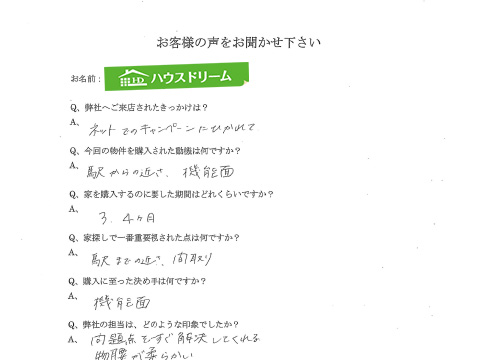 お客様の声をお聞かせ下さい
お名前：
HD ハウスドリーム
Q、弊社へご来店されたきっかけは？
A、ネットでのキャンペーンにひかれて
Q、今回の物件を購入された動機は何ですか？
A、駅からの近さ、機能面
Q、家を購入するのに要した期間はどれくらいですか？
A、3、4ヶ月
Q、家探しで一番重要視された点は何ですか？
A、駅までの近さ、間取り
Q、購入に至った決め手は何ですか？
A、機能面
Q、弊社の担当は、どのような印象でしたか？
A、問題点をすぐ解決してくれる
物腰が柔らかい